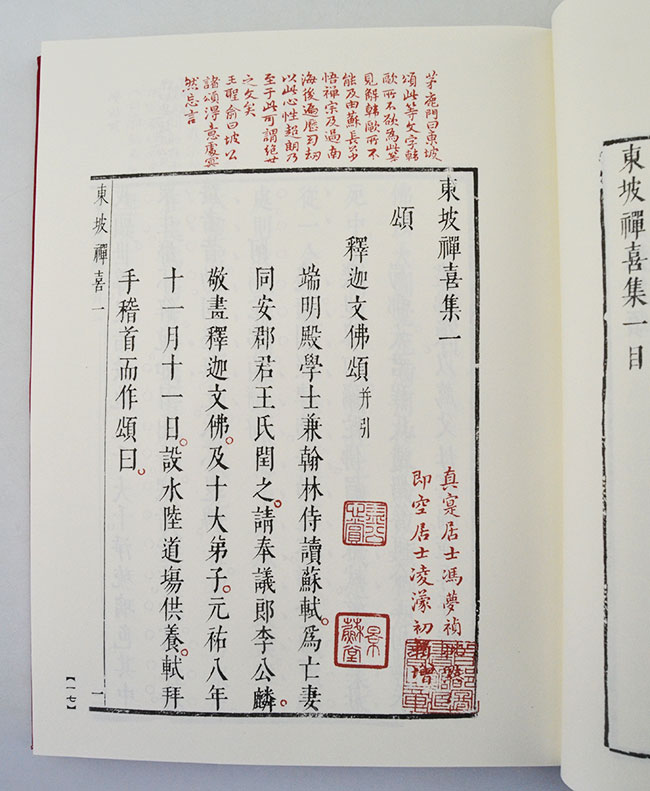 東坡禪喜集一目
茅鹿門曰東坡
頌此等文字韓
歐所不欲為此等
見解韓歐所不
能及由蘇長公少
悟禪宗及過南
海後遍歷劫
以此心性超朗乃
至于此可謂絕世
之文矣
王聖俞曰坡公
諸頌得意處冥
然忘言
東坡禪喜集一
真寔居士馮夢禎
即空居士凌濛初增
頌
釋迦文佛頌并引
端明殿學士兼翰林侍讀蘇軾。爲亡妻
同安郡君王氏閏之。請奉議郎李公麟
敬畫釋迦文佛。及十大弟子。元祐八年
十一月十一日。設水陸道場供養。軾拜
手稽首而作頌曰。
東坡禪喜一
一
【一七】